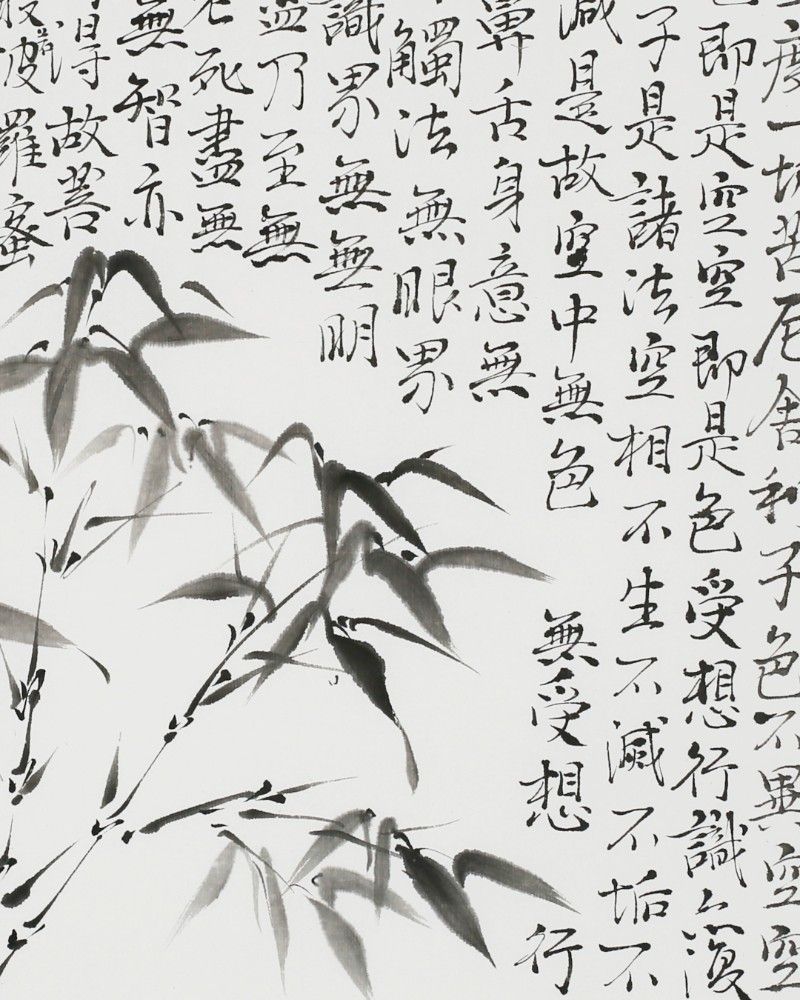 度一切苦厄舍利子色不異空空
色即是空空即是色受想行識亦復
子是諸法空相不生不滅不垢不
滅是故空中無色 無受想 行
鼻舌身意無
觸法無眼界
識界無無明
盡乃至無
老死盡無
無智亦
得故菩
波羅蜜